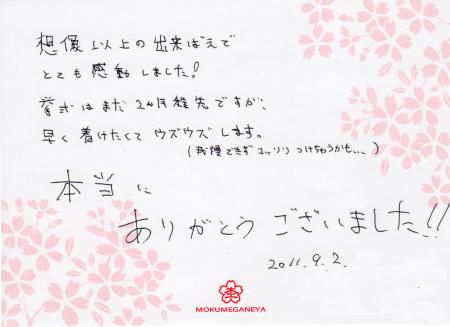 想像以上の出来ばえで
とても感動しました!
挙式はまだ2ヶ月程先ですが、
早く着けたくてウズウズします。
(我慢できずコッソリつけちゃうかも...)
本当に
ありがとうございました!!
2011.9.2.
MOKUMEGANEYA